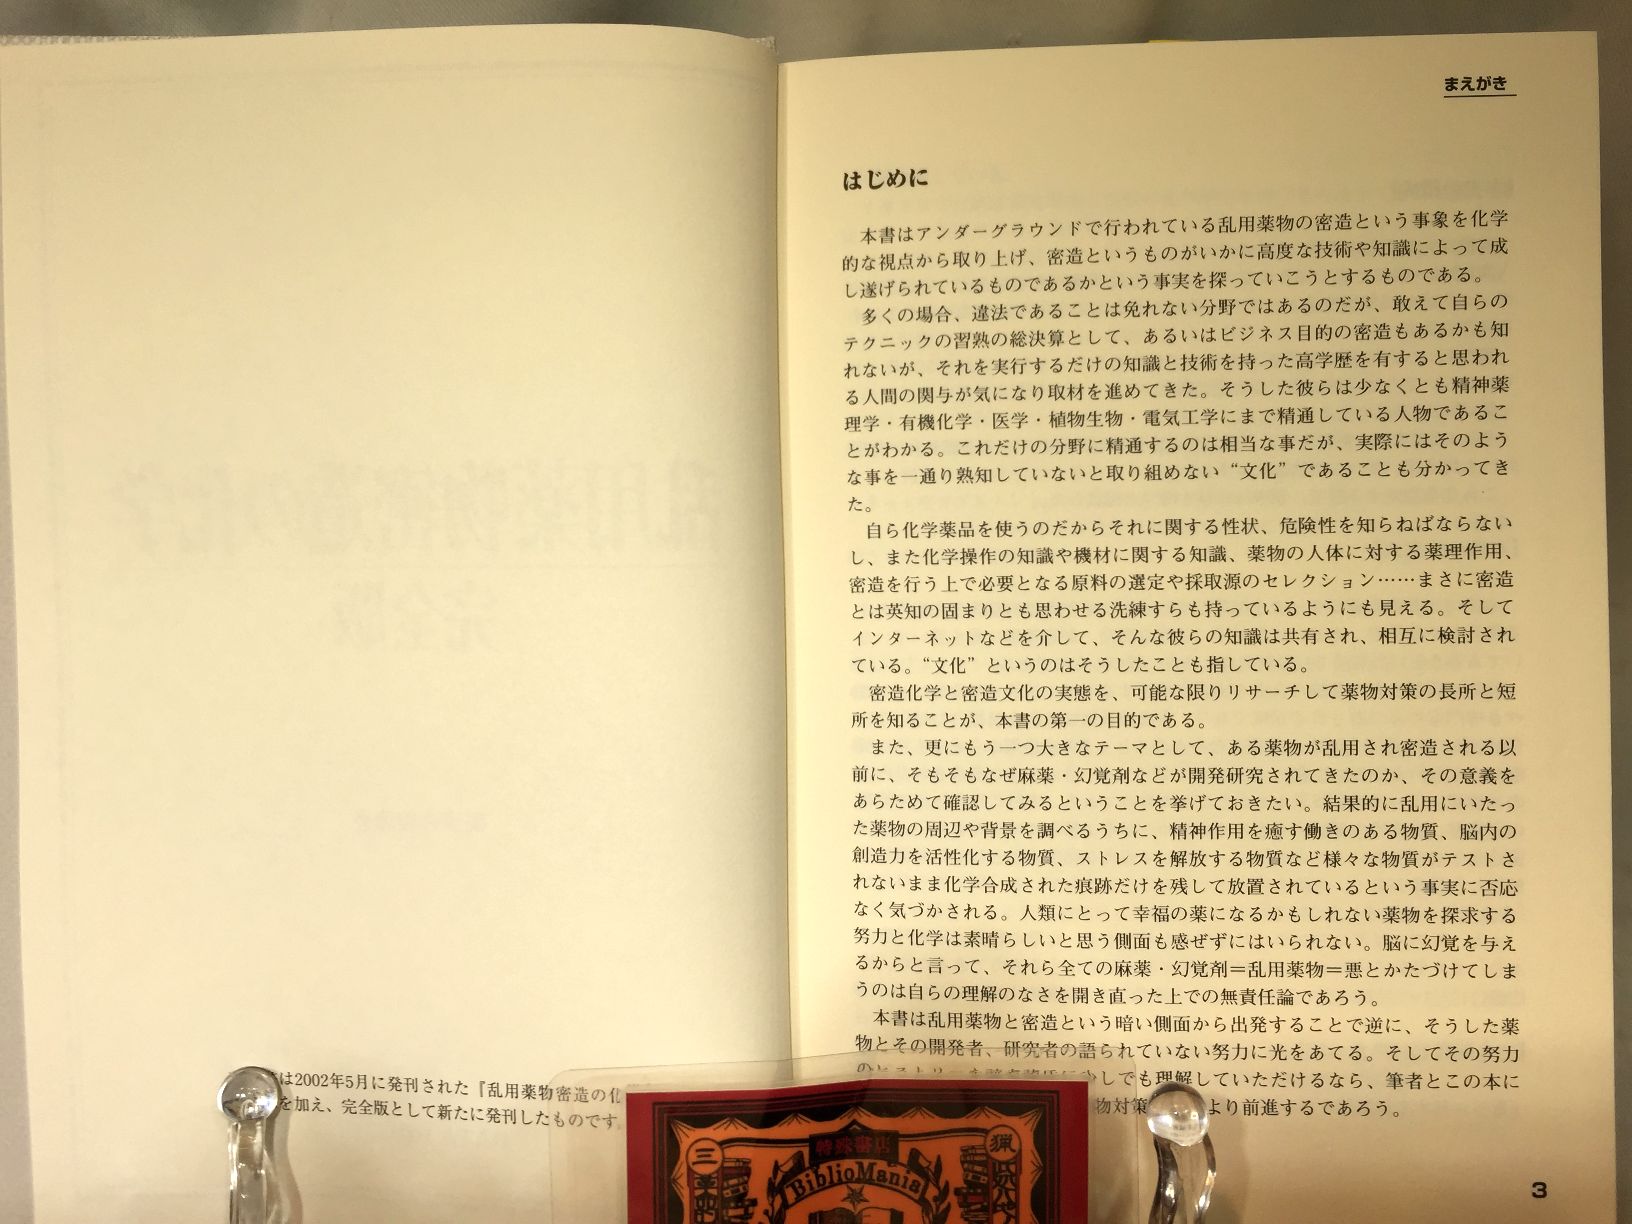 は2002年5月に発刊された『乱用薬物密造の化
を加え、完全版として新たに発刊したものです。
まえがき
はじめに
本書はアンダーグラウンドで行われている乱用薬物の密造という事象を化学
的な視点から取り上げ、密造というものがいかに高度な技術や知識によって成
し遂げられているものであるかという事実を探っていこうとするものである。
多くの場合、違法であることは免れない分野ではあるのだが、敢えて自らの
テクニックの習熟の総決算として、あるいはビジネス目的の密造もあるかも知
れないが、それを実行するだけの知識と技術を持った高学歴を有すると思われ
る人間の関与が気になり取材を進めてきた。そうした彼らは少なくとも精神薬
理学・有機化学・医学・植物生物・電気工学にまで精通している人物であるこ
とがわかる。これだけの分野に精通するのは相当な事だが、実際にはそのよう
な事を一通り熟知していないと取り組めない“文化”であることも分かってき
た。
自ら化学薬品を使うのだからそれに関する性状、危険性を知らねばならない
し、また化学操作の知識や機材に関する知識、薬物の人体に対する薬理作用、
密造を行う上で必要となる原料の選定や採取源のセレクション……まさに密造
とは英知の固まりとも思わせる洗練すらも持っているようにも見える。そして
インターネットなどを介して、そんな彼らの知識は共有され、相互に検討され
ている。“文化”というのはそうしたことも指している。
密造化学と密造文化の実態を、可能な限りリサーチして薬物対策の長所と短
所を知ることが、本書の第一の目的である。
また、更にもう一つ大きなテーマとして、ある薬物が乱用され密造される以
前に、そもそもなぜ麻薬・幻覚剤などが開発研究されてきたのか、その意義を
あらためて確認してみるということを挙げておきたい。結果的に乱用にいたっ
た薬物の周辺や背景を調べるうちに、精神作用を癒す働きのある物質、脳内の
創造力を活性化する物質、ストレスを解放する物質など様々な物質がテストさ
れないまま化学合成された痕跡だけを残して放置されているという事実に否応
なく気づかされる。人類にとって幸福の薬になるかもしれない薬物を探求する
努力と化学は素晴らしいと思う側面も感ぜずにはいられない。脳に幻覚を与え
るからと言って、それら全ての麻薬・幻覚剤＝乱用薬物＝悪とかたづけてしま
うのは自らの理解のなさを開き直った上での無責任論であろう。
本書は乱用薬物と密造という暗い側面から出発することで逆に、そうした薬
物とその開発者、研究者の語られていない努力に光をあてる。そしてその努力
少しでも理解していただけるなら、筆者とこの本に
物対策 より前進するであろう。
3
特殊書店
BiblioMania
三
猟